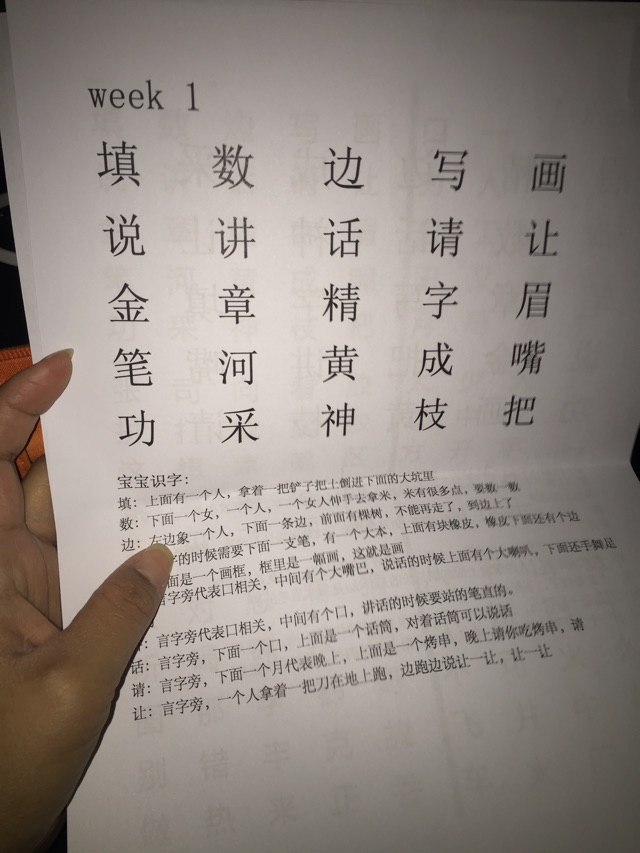 week 1
填 数 边 写 画
说 讲 话 请 让
金 章 精 字 眉
笔 河 黄 成 嘴
功 采 神 枝 把
宝宝识字:
填: 上面有一个人，拿着一把铲子把土倒进下面的大坑里
数: 下面一个女，一个人，一个女人伸手去拿米，米有很多点，要数一数
边: 左边象一个人，下面一条边，前面有棵树，不能再走了，到边上了
字的时候需要下面一支笔，有一个大本，上面有块橡皮，橡皮下面还有个边
面是一个画框，框里是一幅画，这就是画
言字旁代表口相关，中间有个大嘴巴，说话的时候上面有个大喇叭，下面还手舞足
: 言字旁代表口相关，中间有个口，讲话的时候要站的笔直的。
话: 言字旁，下面一个口，上面是一个话筒，对着话筒可以说话
请: 言字旁，下面一个月代表晚上，上面是一个烤串，晚上请你吃烤串，请
让: 言字旁，一个人拿着一把刀在地上跑，边跑边说让一让，让一让